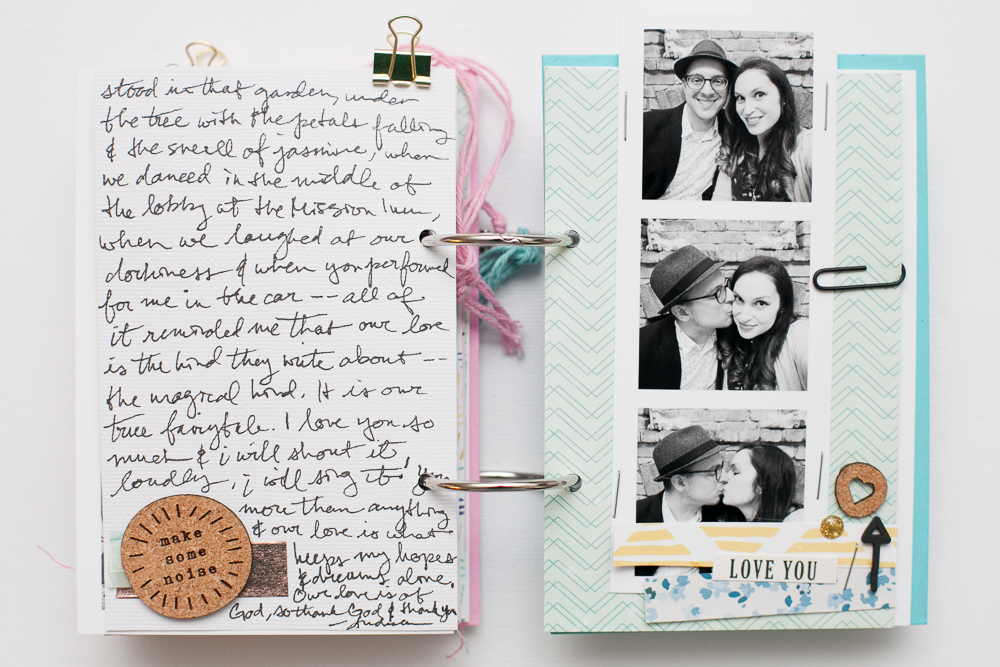 stood in that garden, under
the tree with the petals falling
& the smell of jasmine, when
we danced in the middle of
the lobby at the Mission Inn,
when we laughed at our
dorkiness & when you performed
for me in the car -- all of
it reminded me that our love
is the kind they write about --
the magical kind. It is our
true fairytale. I love you so
much & i will shout it
loudly, i will sing it!
more than anything
& our love is what
keeps my hopes
& dreams alive.
Our love is of
God, so thank God & thank you
make
some
noise
LOVE YOU